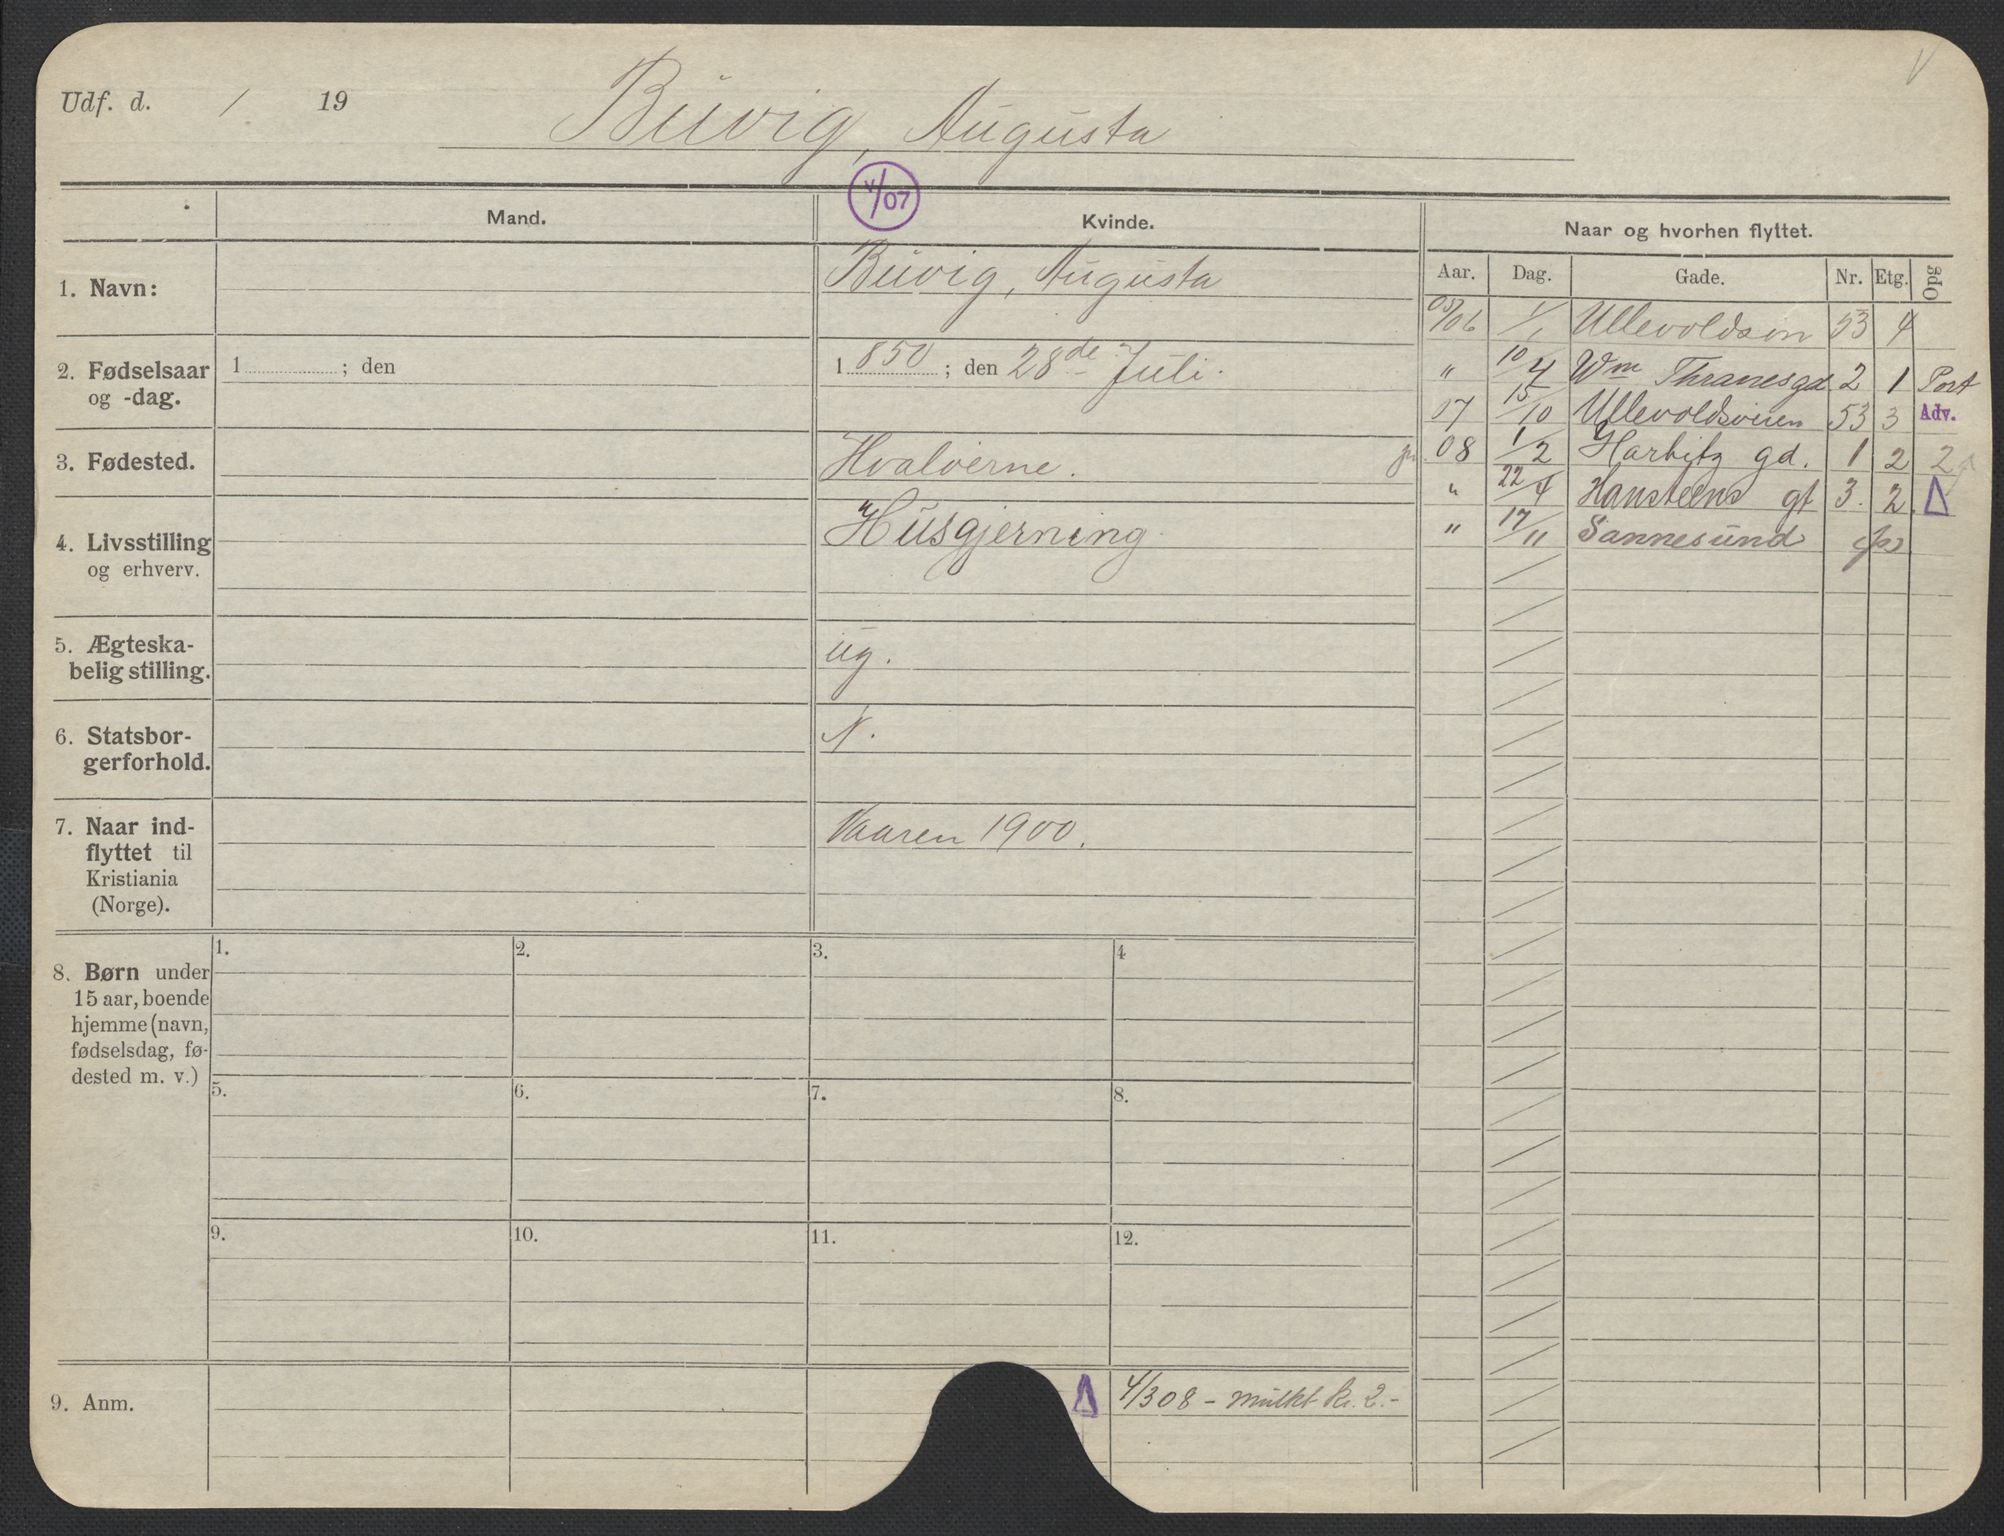 Udf. d. / 19
Buvig, Augusta
V/07
Mand. Kvinde. Naar og hvorhen flyttet.
Aar. Dag. Gade. Nr. Etg. Opg
1. Navn: Buvig, Augusta
2. Fødselsaar og -dag. 1 ; den
1850; den 28de Juli.
3. Fødested. Hvaløerne.
4. Livsstilling og erhverv. Husgjerning
5. Ægteskabelig stilling. ug.
6. Statsborgerforhold. N.
7. Naar indflyttet til Kristiania (Norge). Vaaren 1900.
05/06 1/1 Ullevoldsvn 53 4
" 10/4 Wm Thranesgd 2 1 Port
07 15/10 Ullevoldsveien 53 3 Adv.
08 1/2 Harbitz gd. 1 2 2
" 22/4 Hansteens gt 3. 2.
" 17/11 Sannesund
8. Børn under
15 aar, boende
hjemme (navn,
fødselsdag, fø-
dested m. v.)
1. 2. 3. 4
5. 6. 7. 8.
9. 10. 11. 12.
9. Anm. 4/308 - mulkt kr. 2.-